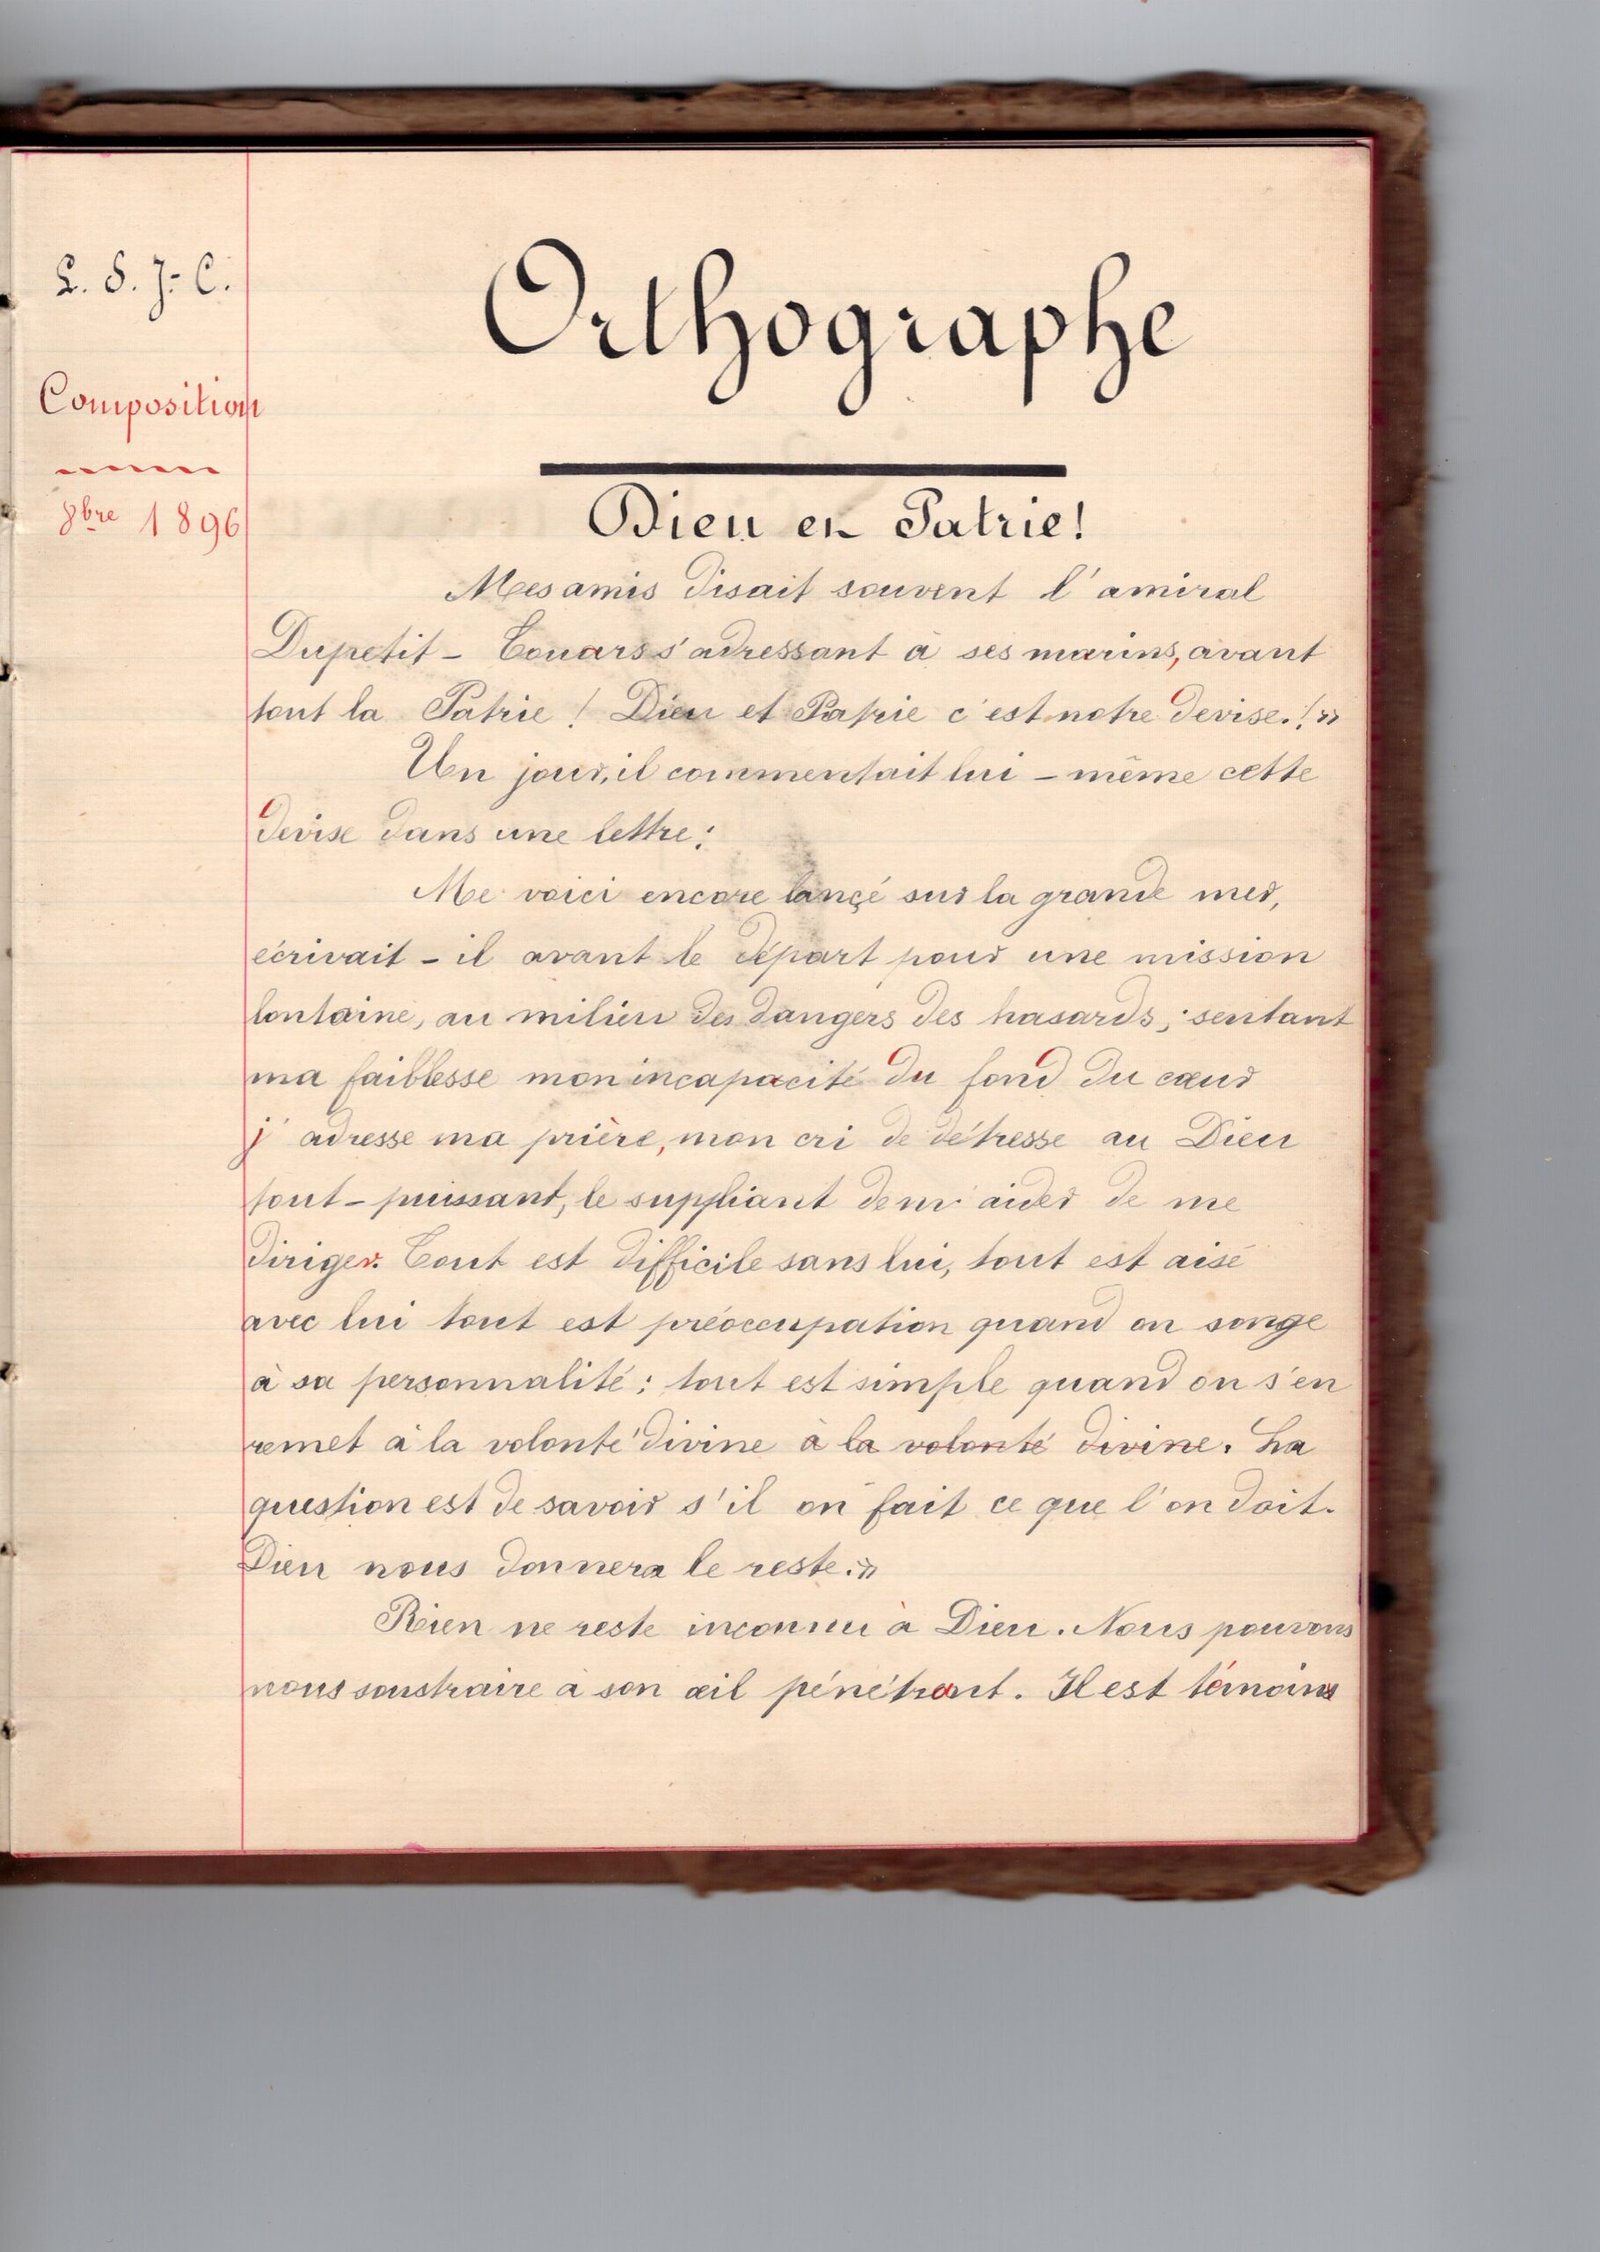 L. S. J.- C.
Orthographe
Composition
8bre 1896
Dieu en Patrie!
Mes amis disait souvent l'amiral
Dupetit - Touars s'adressant à ses marins, avant
tout la Patrie ! Dieu et Patrie c'est notre devise.! »
Un jour, il commentait lui - même cette
devise dans une lettre :
Me voici encore lançé sur la grande mer,
écrivait - il avant le départ pour une mission
lontaine, au milieu des dangers des hasards ; sentant
ma faiblesse mon incapacité du fond du cœur
j'adresse ma prière, mon cri de détresse au Dieu
tout - puissant, le suppliant de m'aider de me
diriger. Tout est difficile sans lui, tout est aisé
avec lui tout est préoccupation quand on songe
à sa personnalité ; tout est simple quand on s'en
remet à la volonté divine à la volonté divine. La
question est de savoir s'il on fait ce que l'on doit.
Dieu nous donnera le reste. »
Rien ne reste inconnu à Dieu. Nous pouvons
nous soustraire à son œil pénétrant. Il est témoins